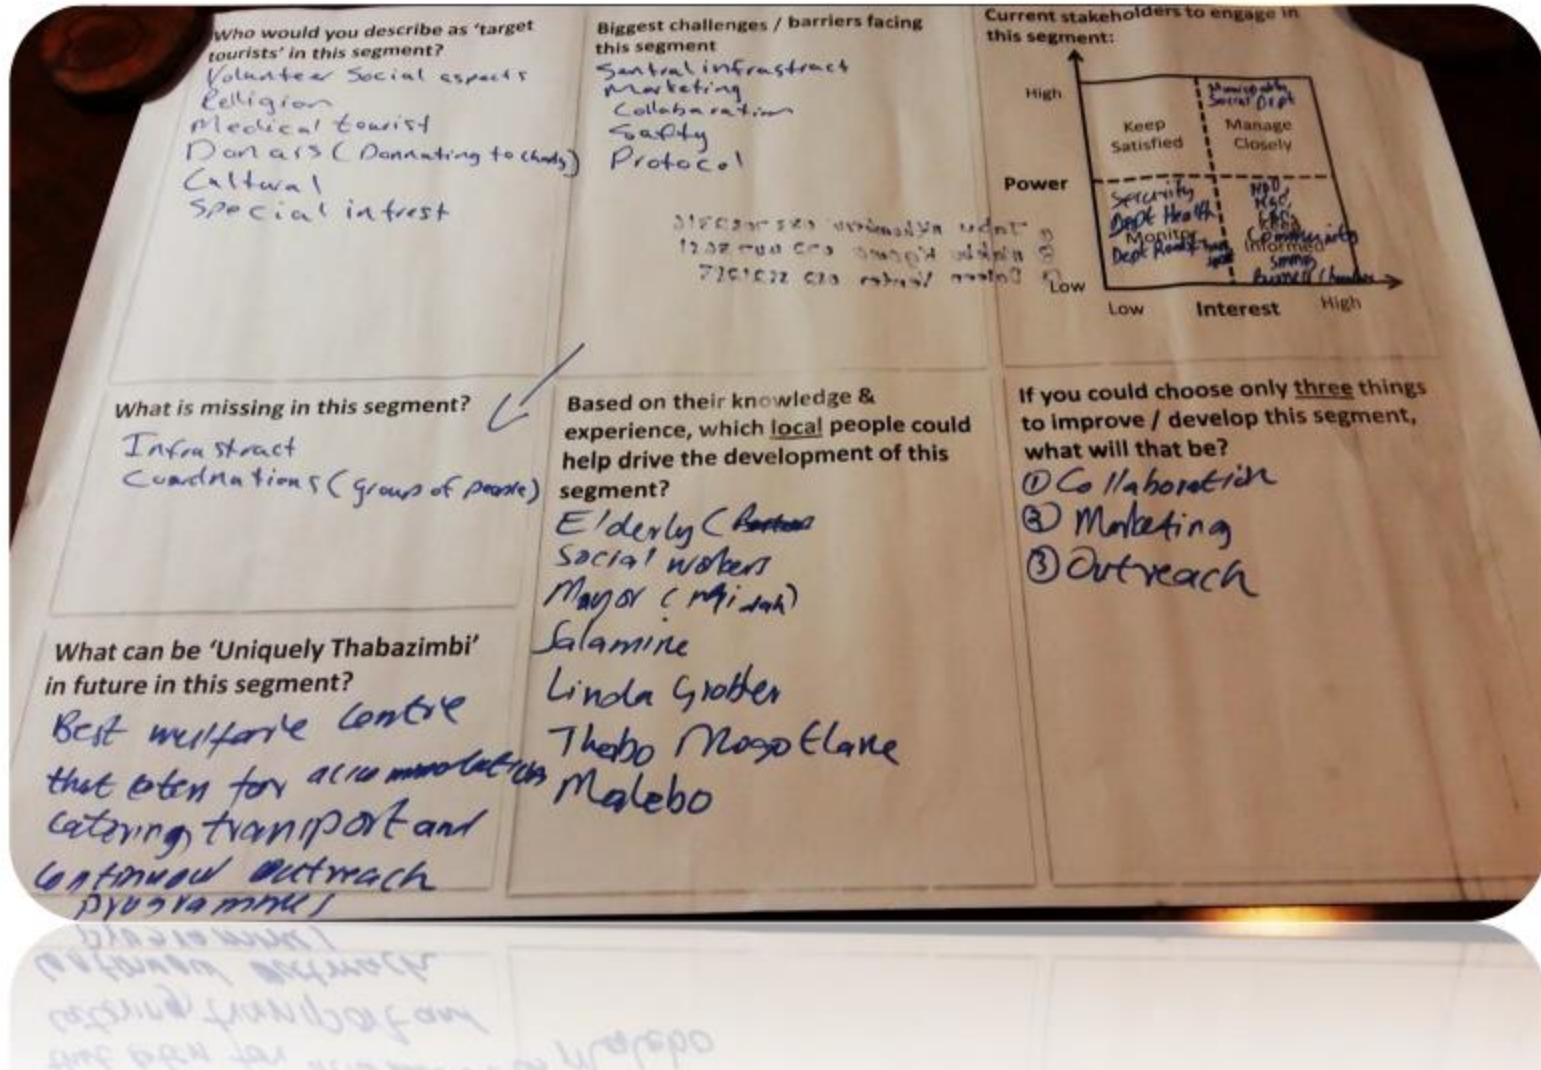 Who would you describe as 'target
tourists' in this segment?
Volunteer Social aspects
Religion
Medical tourist
Donars (Donnating to
Cultural
Special intrest
Biggest challenges / barriers facing
this segment
Sentral infrastract
Marketing
Collabaration
Safty
Protocol
Current stakeholders to engage in
this segment:
High
Municipality
Social Dept
Keep
Satisfied
Manage
Closely
Power
Sercurity
Dept Health
Monitor
Dept Roads
NPO,
NGO,
Keep
Community
Informed
Business Chamber
Low
Low
Interest
High
What is missing in this segment?
Infrastract
(group of people)
Based on their knowledge &
experience, which local people could
help drive the development of this
segment?
Elderly (
Social workers
Mayor (
Salamine
Linda Grobler
Thabo Mogotlane
Malebo
If you could choose only three things
to improve / develop this segment,
what will that be?
① Collaboration
② Marketing
③ Outreach
What can be 'Uniquely Thabazimbi'
in future in this segment?
Best welfare centre
that for
catering, transport and
continuous outreach
programmes